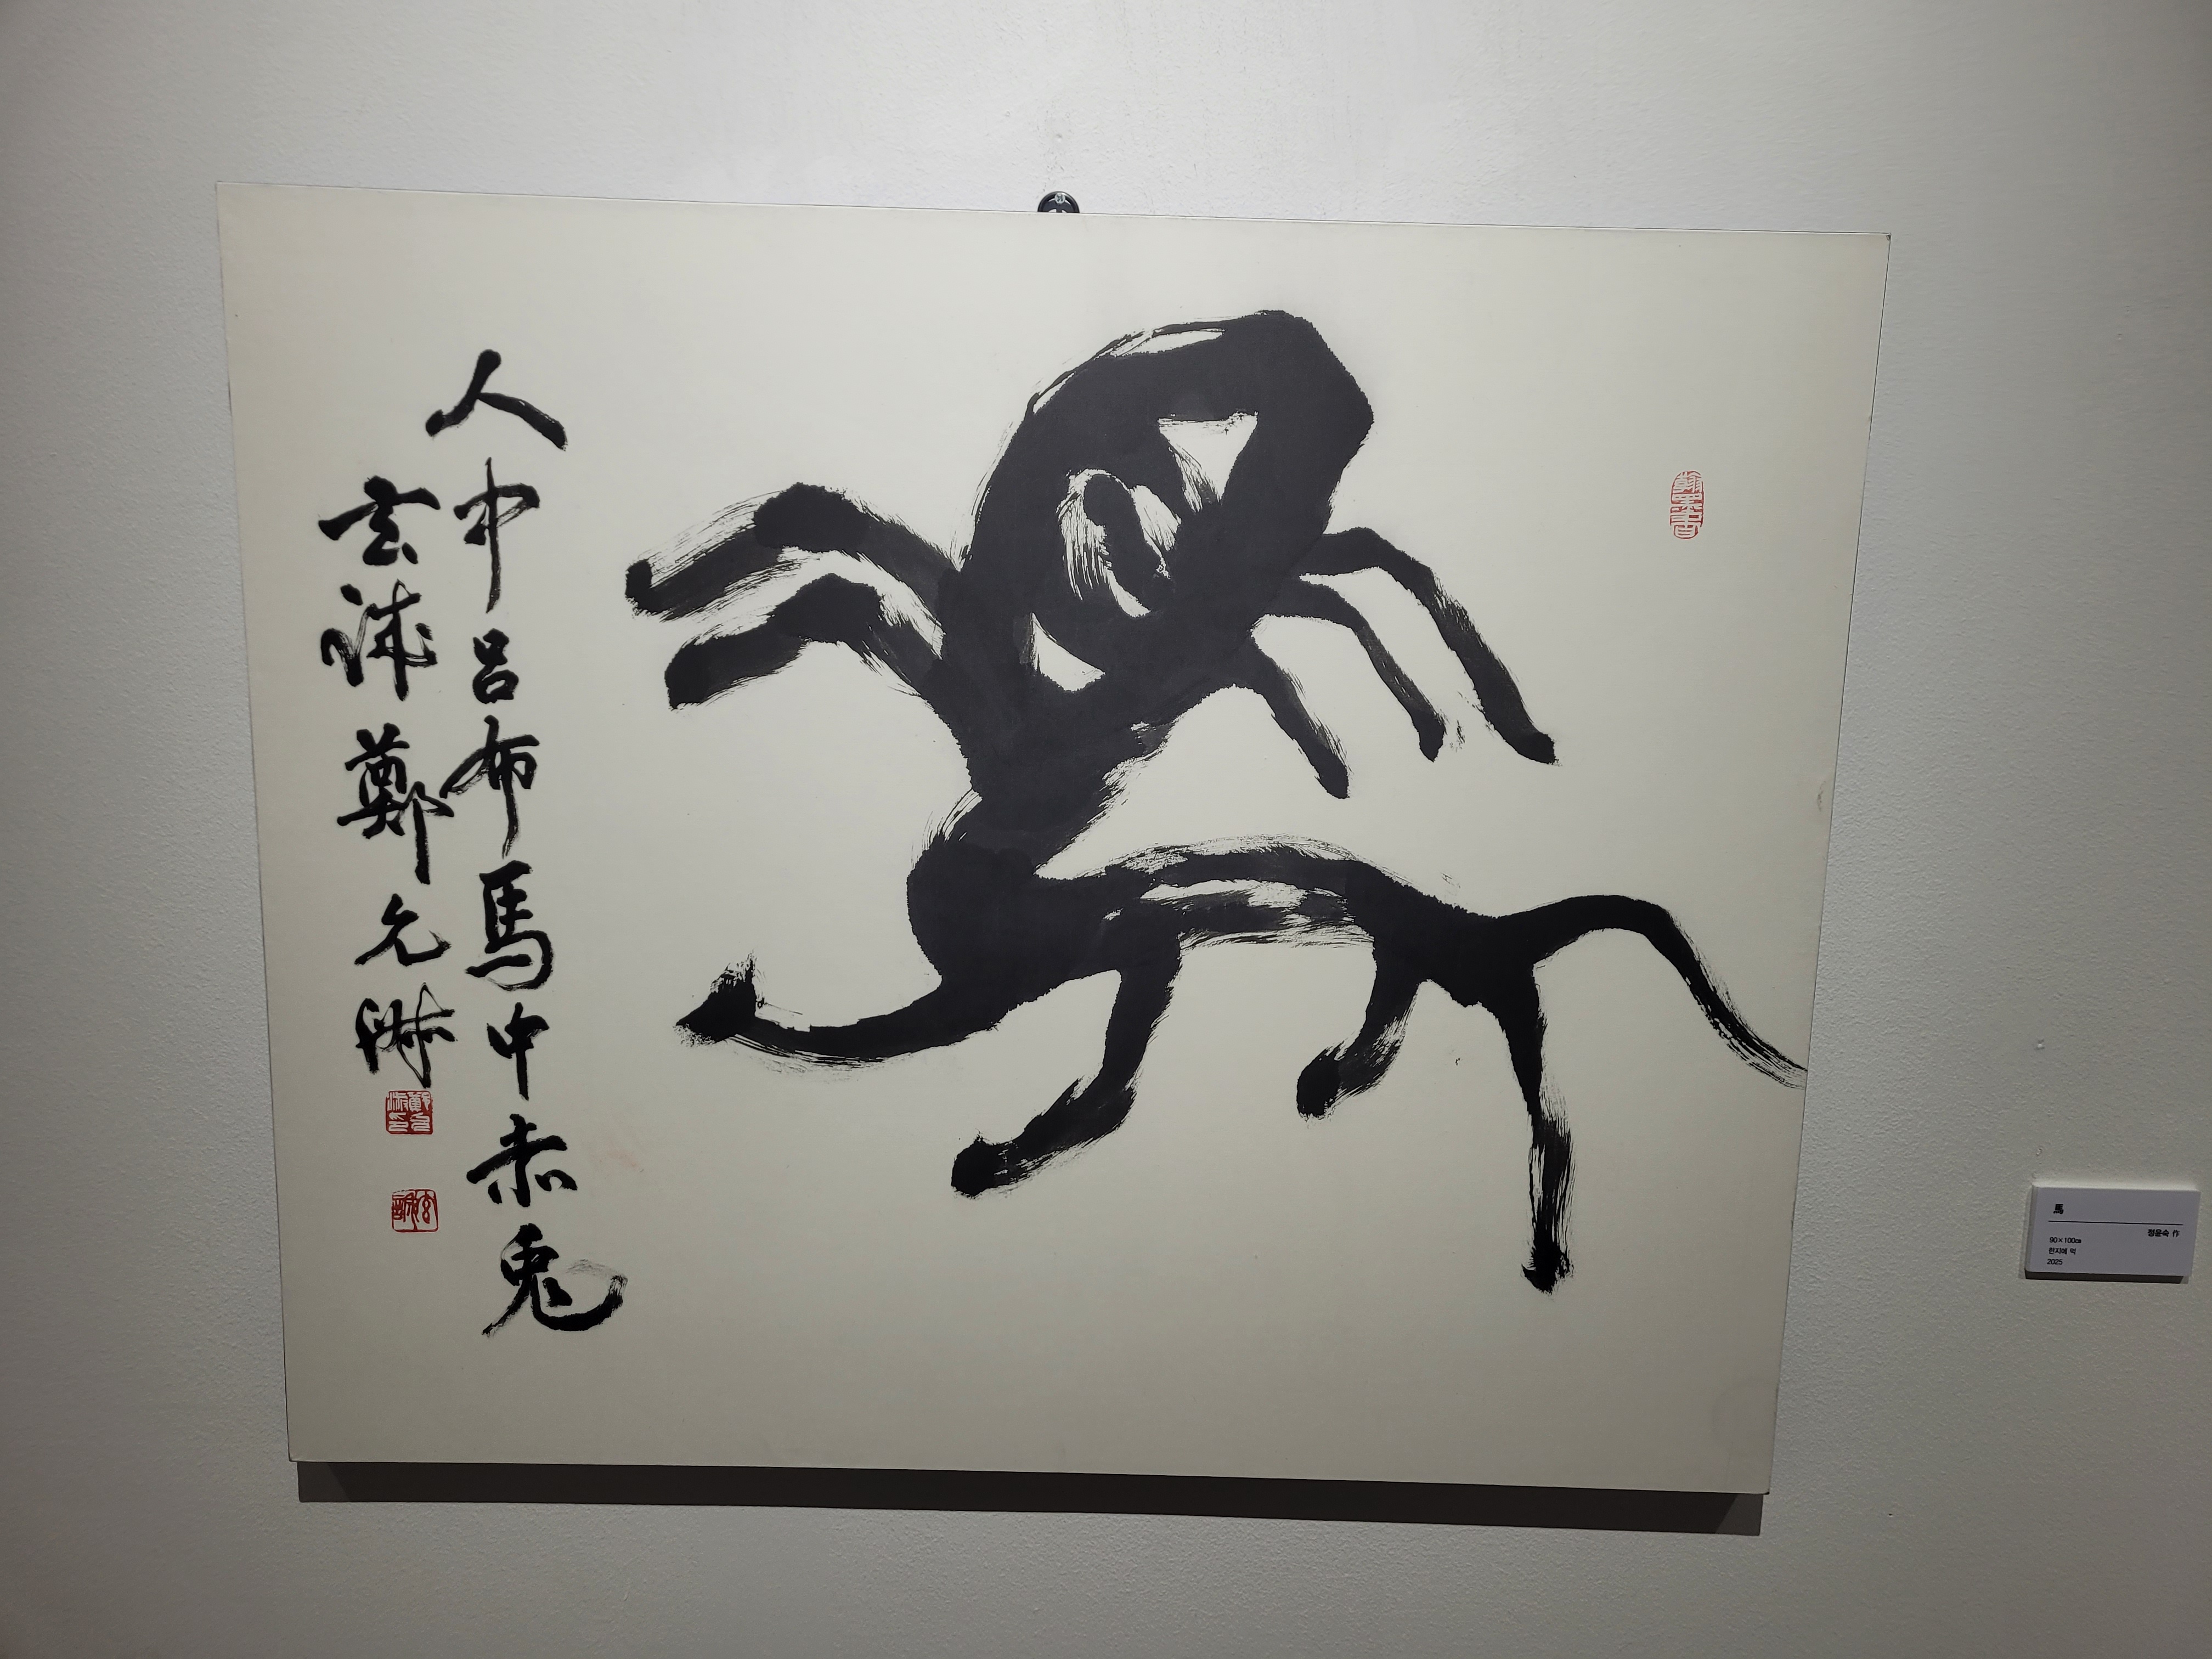 人中呂布馬中赤兔
玄誠鄭允淑
馬
정윤숙 作
90×100㎝
한지에 먹
2025